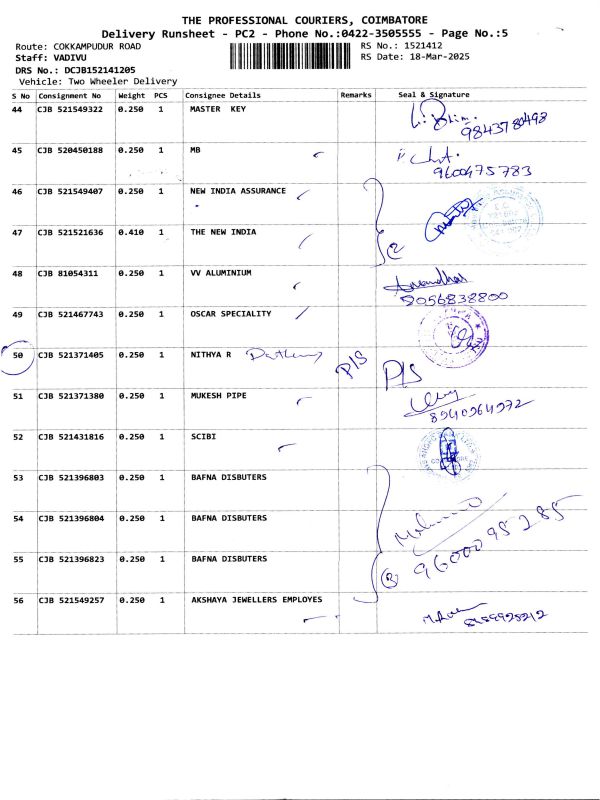 THE PROFESSIONAL COURIERS, COIMBATORE
Delivery Runsheet - PC2 - Phone No.:0422-3505555 - Page No.:5
Route: COKKAMPUDUR ROAD RS No.: 1521412
Staff: VADIVU RS Date: 18-Mar-2025
DRS No.: DCJB152141205
Vehicle: Two Wheeler Delivery
S No Consignment No Weight PCS Consignee Details Remarks Seal & Signature
44 CJB 521549322 0.250 1 MASTER KEY
9843780498
45 CJB 520450188 0.250 1 MB
9600475783
46 CJB 521549407 0.250 1 NEW INDIA ASSURANCE
47 CJB 521521636 0.410 1 THE NEW INDIA
2
48 CJB 81054311 0.250 1 VV ALUMINIUM
9056838800
49 CJB 521467743 0.250 1 OSCAR SPECIALITY
50 CJB 521371405 0.250 1 NITHYA R P/S P/S
51 CJB 521371380 0.250 1 MUKESH PIPE
8940964972
52 CJB 521431816 0.250 1 SCIBI
53 CJB 521396803 0.250 1 BAFNA DISBUTERS
54 CJB 521396804 0.250 1 BAFNA DISBUTERS
9600095285
55 CJB 521396823 0.250 1 BAFNA DISBUTERS
3
56 CJB 521549257 0.250 1 AKSHAYA JEWELLERS EMPLOYES